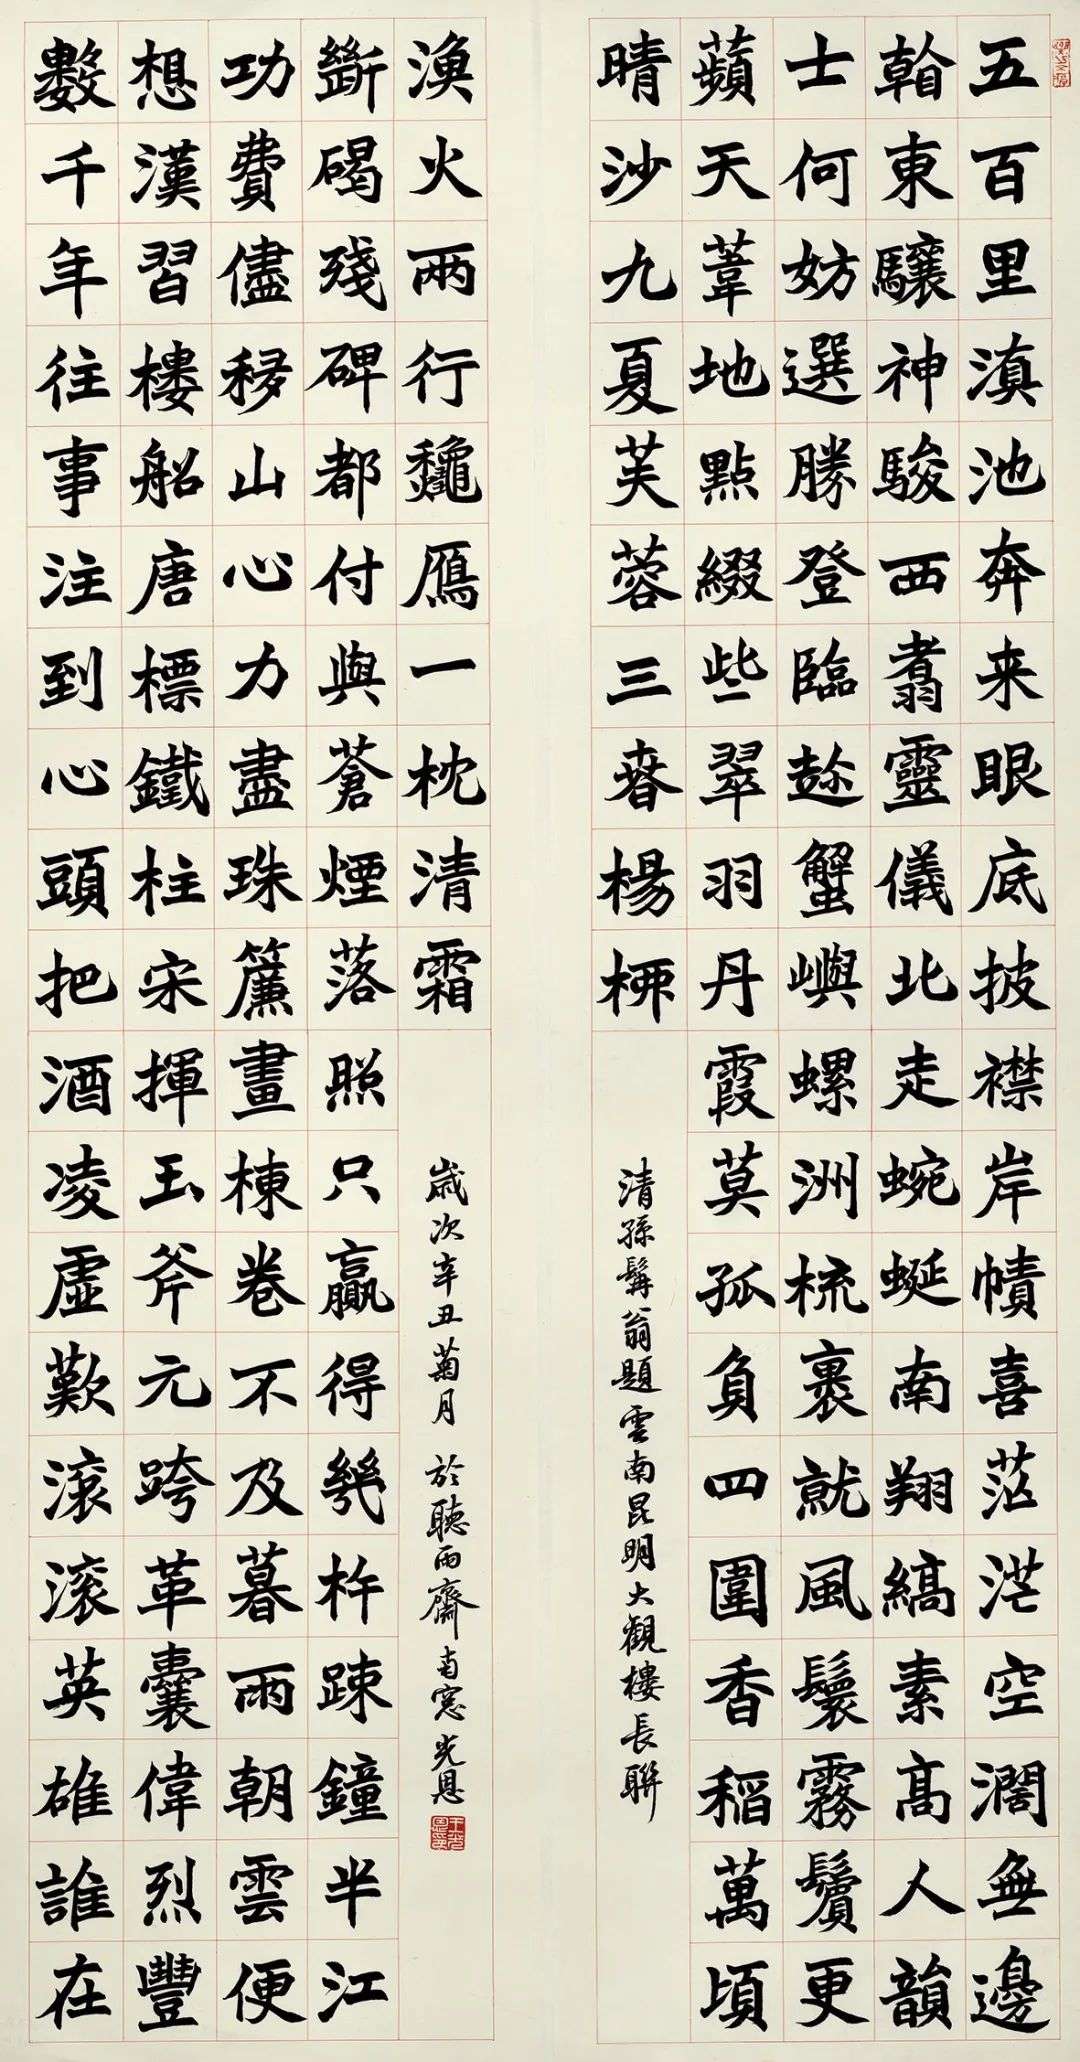 五百里滇池奔来眼底披襟岸幘喜茫茫空濶無邊
看東驤神駿西翥靈儀北走蜿蜒南翔縞素高人韻
士何妨選勝登臨趂蟹嶼螺洲梳裹就風鬟霧鬢更
蘋天葦地點綴些翠羽丹霞莫孤負四圍香稻萬頃
晴沙九夏芙蓉三春楊柳
清孫髯翁題雲南昆明大觀樓長聯
數千年往事注到心頭把酒凌虛歎滾滾英雄誰在
想漢習樓船唐標鐵柱宋揮玉斧元跨革囊偉烈豐
功費儘移山心力盡珠簾畫棟卷不及暮雨朝雲便
斷碣殘碑都付與蒼煙落照只贏得幾杵疎鐘半江
漁火兩行龝鴈一枕清霜
歲次辛丑菊月 於聽雨齋南窗光恩
王光恩印